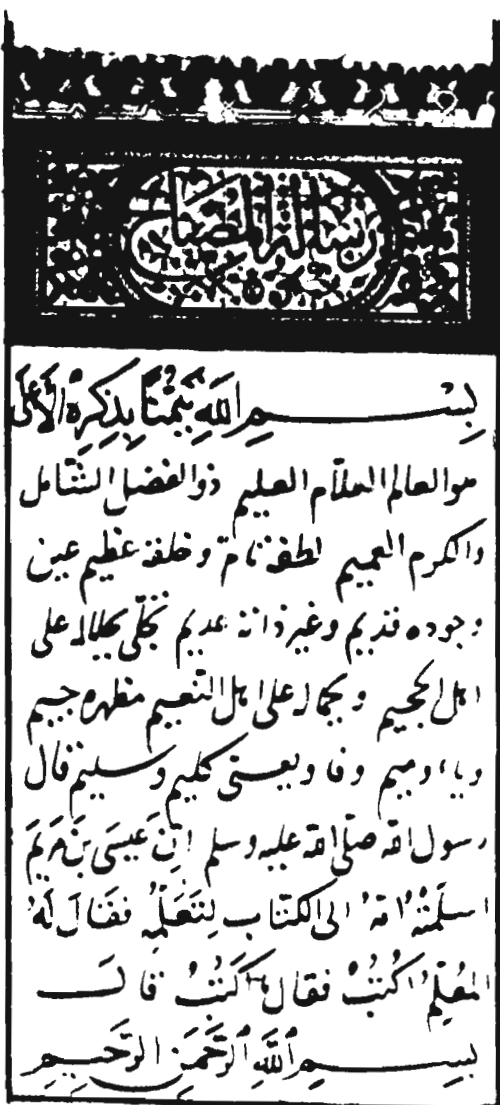 رسالة المصباح
بسم الله تيمّنًا بذكره الأعلى
هو العالم العلّام العليم ذو الفضل الشّامل
والكرم العميم لطفه تامّ وخلقه عظيم عين
وجوده قديم وغير ذاته عديم تجلّى بجلاله على
اهل الجحيم وبجماله على اهل النّعيم مظهره جيم
وياء وميم وفا ويعسى كليم وسليم قال
رسول الله صلّى الله عليه وسلم إنّ عيسى بن مريم
اسلمته امّه الى الكتّاب لتعلّمه فقال له
المعلّم اكتب فقال ما اكتب قال
بسم الله الرّحمن الرّحيم